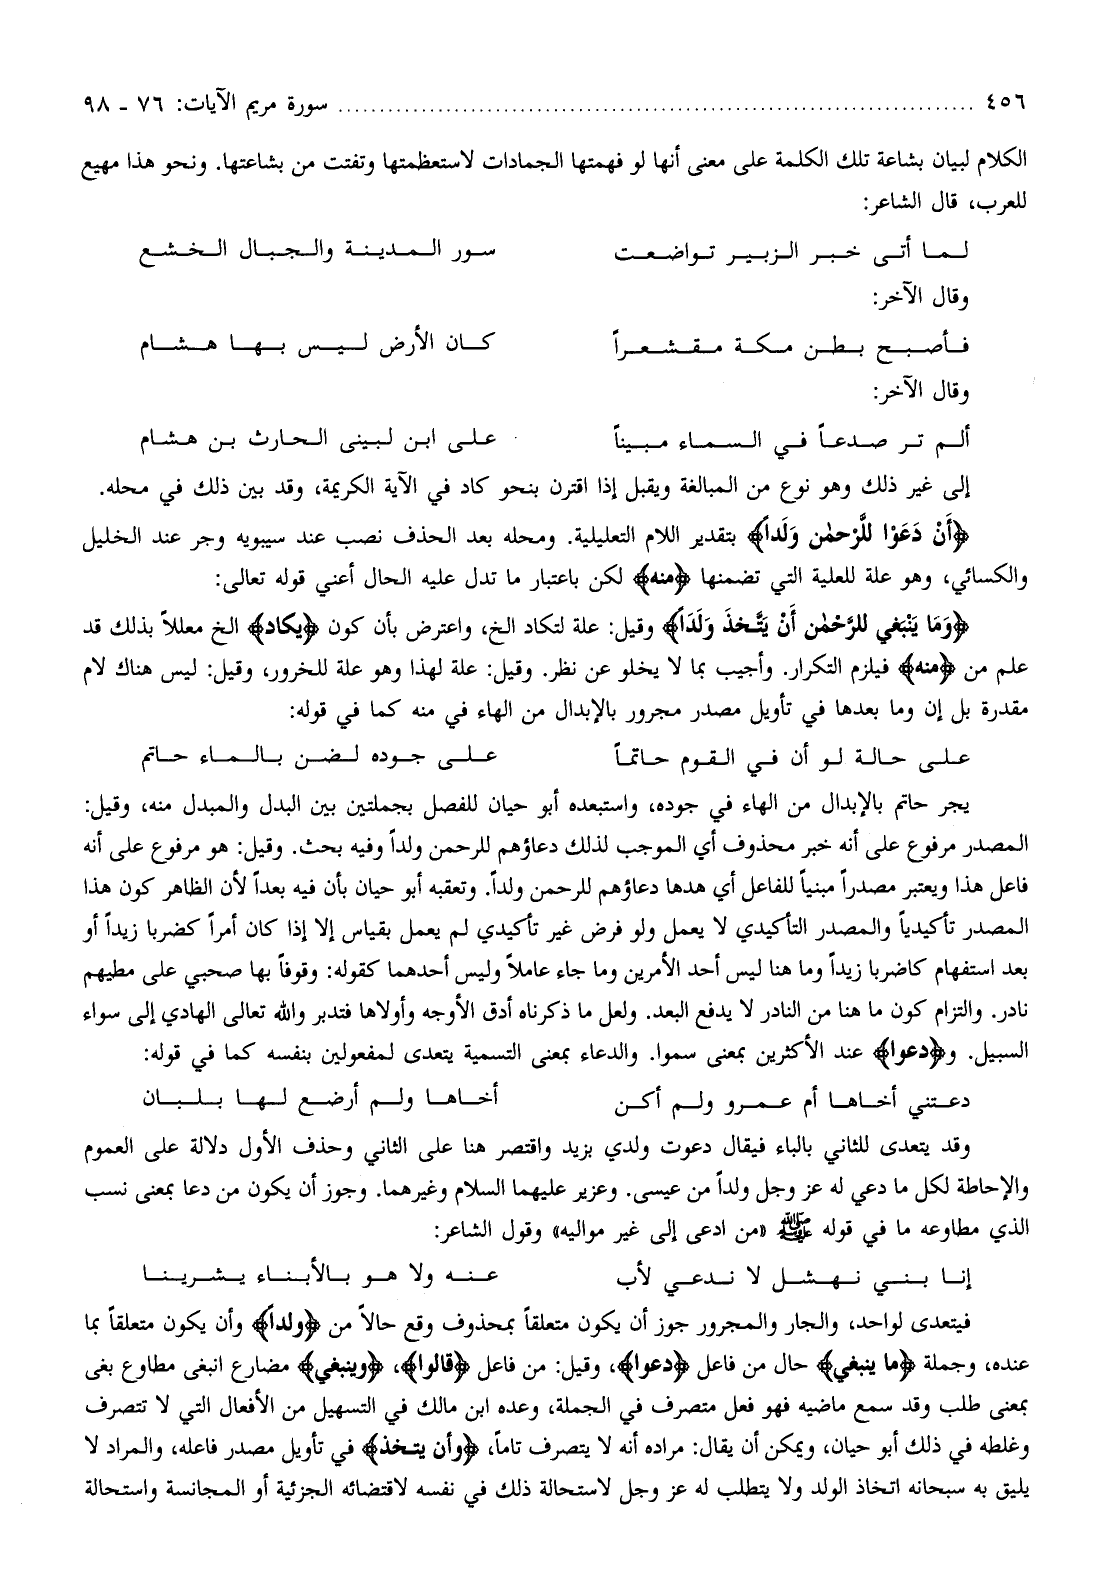 ٤٥٦ ........................................................ سورة مريم الآيات: ٧٦ - ٩٨
الكلام لبيان بشاعة تلك الكلمة على معنى أنها لو فهمتها الجمادات لاستعظمتها وتفتت من بشاعتها. ونحو هذا مهيع
للعرب، قال الشاعر:
لـمـا أتـى خـبـر الـزبـيـر تـواضـعـت سـور الـمـديـنـة والـجـبـال الـخـشـع
وقال الآخر:
فـأصـبـح بـطـن مـكـة مـقـشـعـراً كـان الأرض لـيـس بـهـا هـشـام
وقال الآخر:
ألـم تـر صـدعـاً فـي الـسـمـاء مـبـيـنـاً عـلـى ابـن لـبـيـنـى الـحـارث بـن هـشـام
إلى غير ذلك وهو نوع من المبالغة ويقبل إذا اقترن بنحو كاد في الآية الكريمة، وقد بين ذلك في محله.
﴿أَنْ دَعَوْا للرَّحمٰن وَلَداً﴾ بتقدير اللام التعليلية. ومحله بعد الحذف نصب عند سيبويه وجر عند الخليل
والكسائي، وهو علة للعلية التي تضمنها ﴿منه﴾ لكن باعتبار ما تدل عليه الحال أعني قوله تعالى:
﴿وَمَا يَنْبَغي للرَّحْمٰن أَنْ يَتَّخذَ وَلَدَاً﴾ وقيل: علة لتكاد الخ، واعترض بأن كون ﴿يكاد﴾ الخ معللاً بذلك قد
علم من ﴿منه﴾ فيلزم التكرار. وأجيب بما لا يخلو عن نظر. وقيل: علة لهذا وهو علة للخرور، وقيل: ليس هناك لام
مقدرة بل إن وما بعدها في تأويل مصدر مجرور بالإبدال من الهاء في منه كما في قوله:
عـلـى حـالـة لـو أن فـي الـقـوم حـاتمـاً عـلـى جـوده لـضـن بـالـمـاء حـاتم
يجر حاتم بالإبدال من الهاء في جوده، واستبعده أبو حيان للفصل بجملتين بين البدل والمبدل منه، وقيل:
المصدر مرفوع على أنه خبر محذوف أي الموجب لذلك دعاؤهم للرحمن ولداً وفيه بحث. وقيل: هو مرفوع على أنه
فاعل هذا ويعتبر مصدراً مبنياً للفاعل أي هدها دعاؤهم للرحمن ولداً. وتعقبه أبو حيان بأن فيه بعداً لأن الظاهر كون هذا
المصدر تأكيدياً والمصدر التأكيدي لا يعمل ولو فرض غير تأكيدي لم يعمل بقياس إلا إذا كان أمراً كضربا زيداً أو
بعد استفهام كاضربا زيداً وما هنا ليس أحد الأمرين وما جاء عاملاً وليس أحدهما كقوله: وقوفاً بها صحبي على مطيهم
نادر. والتزام كون ما هنا من النادر لا يدفع البعد. ولعل ما ذكرناه أدق الأوجه وأولاها فتدبر والله تعالى الهادي إلى سواء
السبيل. و﴿دعوا﴾ عند الأكثرين بمعنى سموا. والدعاء بمعنى التسمية يتعدى لمفعولين بنفسه كما في قوله:
دعـتني أخـاهـا أم عـمـرو ولـم أكـن أخـاهـا ولـم أرضـع لـهـا بـلـبـان
وقد يتعدى للثاني بالباء فيقال دعوت ولدي بزيد واقتصر هنا على الثاني وحذف الأول دلالة على العموم
والإحاطة لكل ما دعي له عز وجل ولداً من عيسى. وعزير عليهما السلام وغيرهما. وجوز أن يكون من دعا بمعنى نسب
الذي مطاوعه ما في قوله ﷺ «من ادعى إلى غير مواليه» وقول الشاعر:
إنـا بـنـي نـهـشـل لا نـدعـي لأب عـنـه ولا هـو بـالأبـنـاء يـشـريـنـا
فيتعدى لواحد، والجار والمجرور جوز أن يكون متعلقاً بمحذوف وقع حالاً من ﴿ولداً﴾ وأن يكون متعلقاً بما
عنده، وجملة ﴿ما ينبغي﴾ حال من فاعل ﴿دعوا﴾، وقيل: من فاعل ﴿قالوا﴾، ﴿وينبغي﴾ مضارع انبغى مطاوع بغى
بمعنى طلب وقد سمع ماضيه فهو فعل متصرف في الجملة، وعده ابن مالك في التسهيل من الأفعال التي لا تتصرف
وغلطه في ذلك أبو حيان، ويمكن أن يقال: مراده أنه لا يتصرف تاماً، ﴿وأن يتخذ﴾ في تأويل مصدر فاعله، والمراد لا
يليق به سبحانه اتخاذ الولد ولا يتطلب له عز وجل لاستحالة ذلك في نفسه لاقتضائه الجزئية أو المجانسة واستحالة